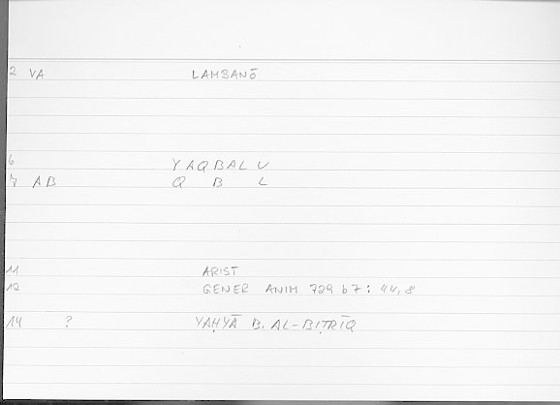 2 VA LAMBANŌ
6 YAQBALU
7 AB Q B L
11 ARIST
12 GENER ANIM 729 b7: 44,8
14 ? YAḤYĀ B. AL-BIṬRĪQ